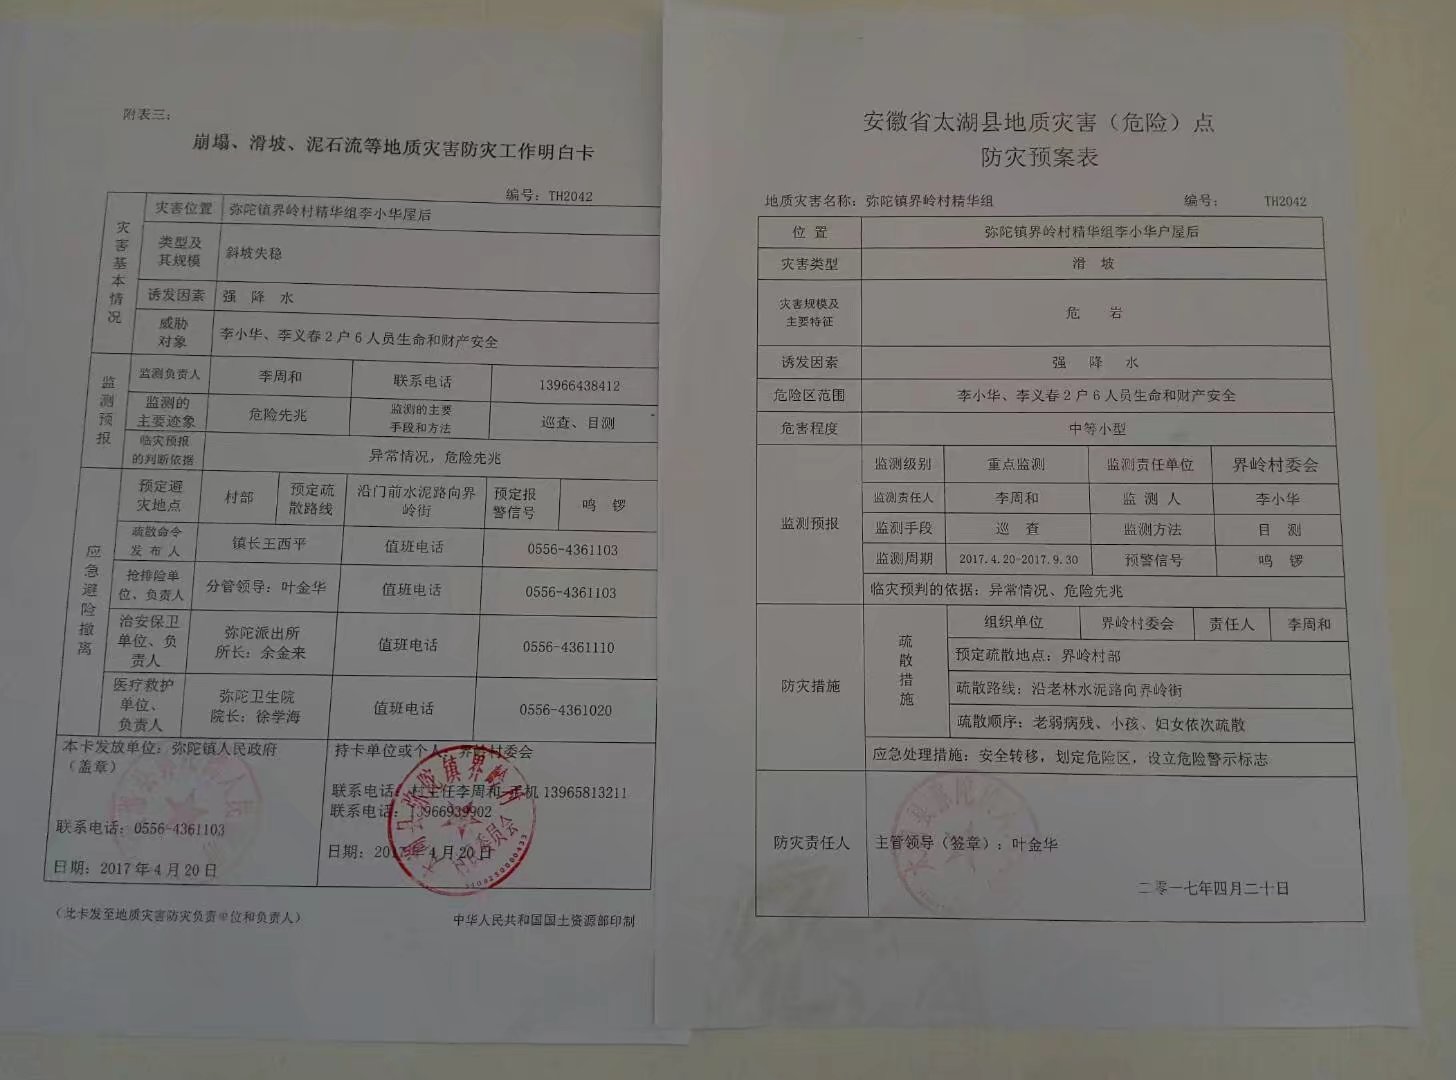 附表三：
崩塌、滑坡、泥石流等地质灾害防灾工作明白卡
编号：TH2042
灾害基本情况
灾害位置 弥陀镇界岭村精华组李小华屋后
类型及其规模 斜坡失稳
诱发因素 强 降 水
威胁对象 李小华、李义春2户6人员生命和财产安全
监测预报
监测负责人 李周和 联系电话 13966438412
监测的主要迹象 危险先兆 监测的主要手段和方法 巡查、目测
临灾预报的判断依据 异常情况，危险先兆
应急避险撤离
预定避灾地点 村部 预定疏散路线 沿门前水泥路向界岭街 预定报警信号 鸣 锣
疏散命令发布人 镇长王西平 值班电话 0556-4361103
抢排险单位、负责人 分管领导：叶金华 值班电话 0556-4361103
治安保卫单位、负责人 弥陀派出所 所长：余金来 值班电话 0556-4361110
医疗救护单位、负责人 弥陀卫生院 院长：徐学海 值班电话 0556-4361020
本卡发放单位：弥陀镇人民政府
（盖章）
联系电话：0556-4361103
日期：2017年4月20日
持卡单位或个人：界岭村委会
联系电话：村主任李周和 手机13965813211
联系电话：13966939902
日期：2017年4月20日
（此卡发至地质灾害防灾负责单位和负责人）
中华人民共和国国土资源部印制
安徽省太湖县地质灾害（危险）点
防灾预案表
地质灾害名称：弥陀镇界岭村精华组 编号： TH2042
位 置 弥陀镇界岭村精华组李小华户屋后
灾害类型 滑 坡
灾害规模及主要特征 危 岩
诱发因素 强 降 水
危险区范围 李小华、李义春2户6人员生命和财产安全
危害程度 中等小型
监测预报
监测级别 重点监测 监测责任单位 界岭村委会
监测责任人 李周和 监 测 人 李小华
监测手段 巡 查 监测方法 目 测
监测周期 2017.4.20-2017.9.30 预警信号 鸣 锣
临灾预判的依据：异常情况、危险先兆
防灾措施
疏散措施
组织单位 界岭村委会 责任人 李周和
预定疏散地点：界岭村部
疏散路线：沿老林水泥路向界岭街
疏散顺序：老弱病残、小孩、妇女依次疏散
应急处理措施：安全转移，划定危险区，设立危险警示标志
防灾责任人 主管领导（签章）：叶金华
二零一七年四月二十日